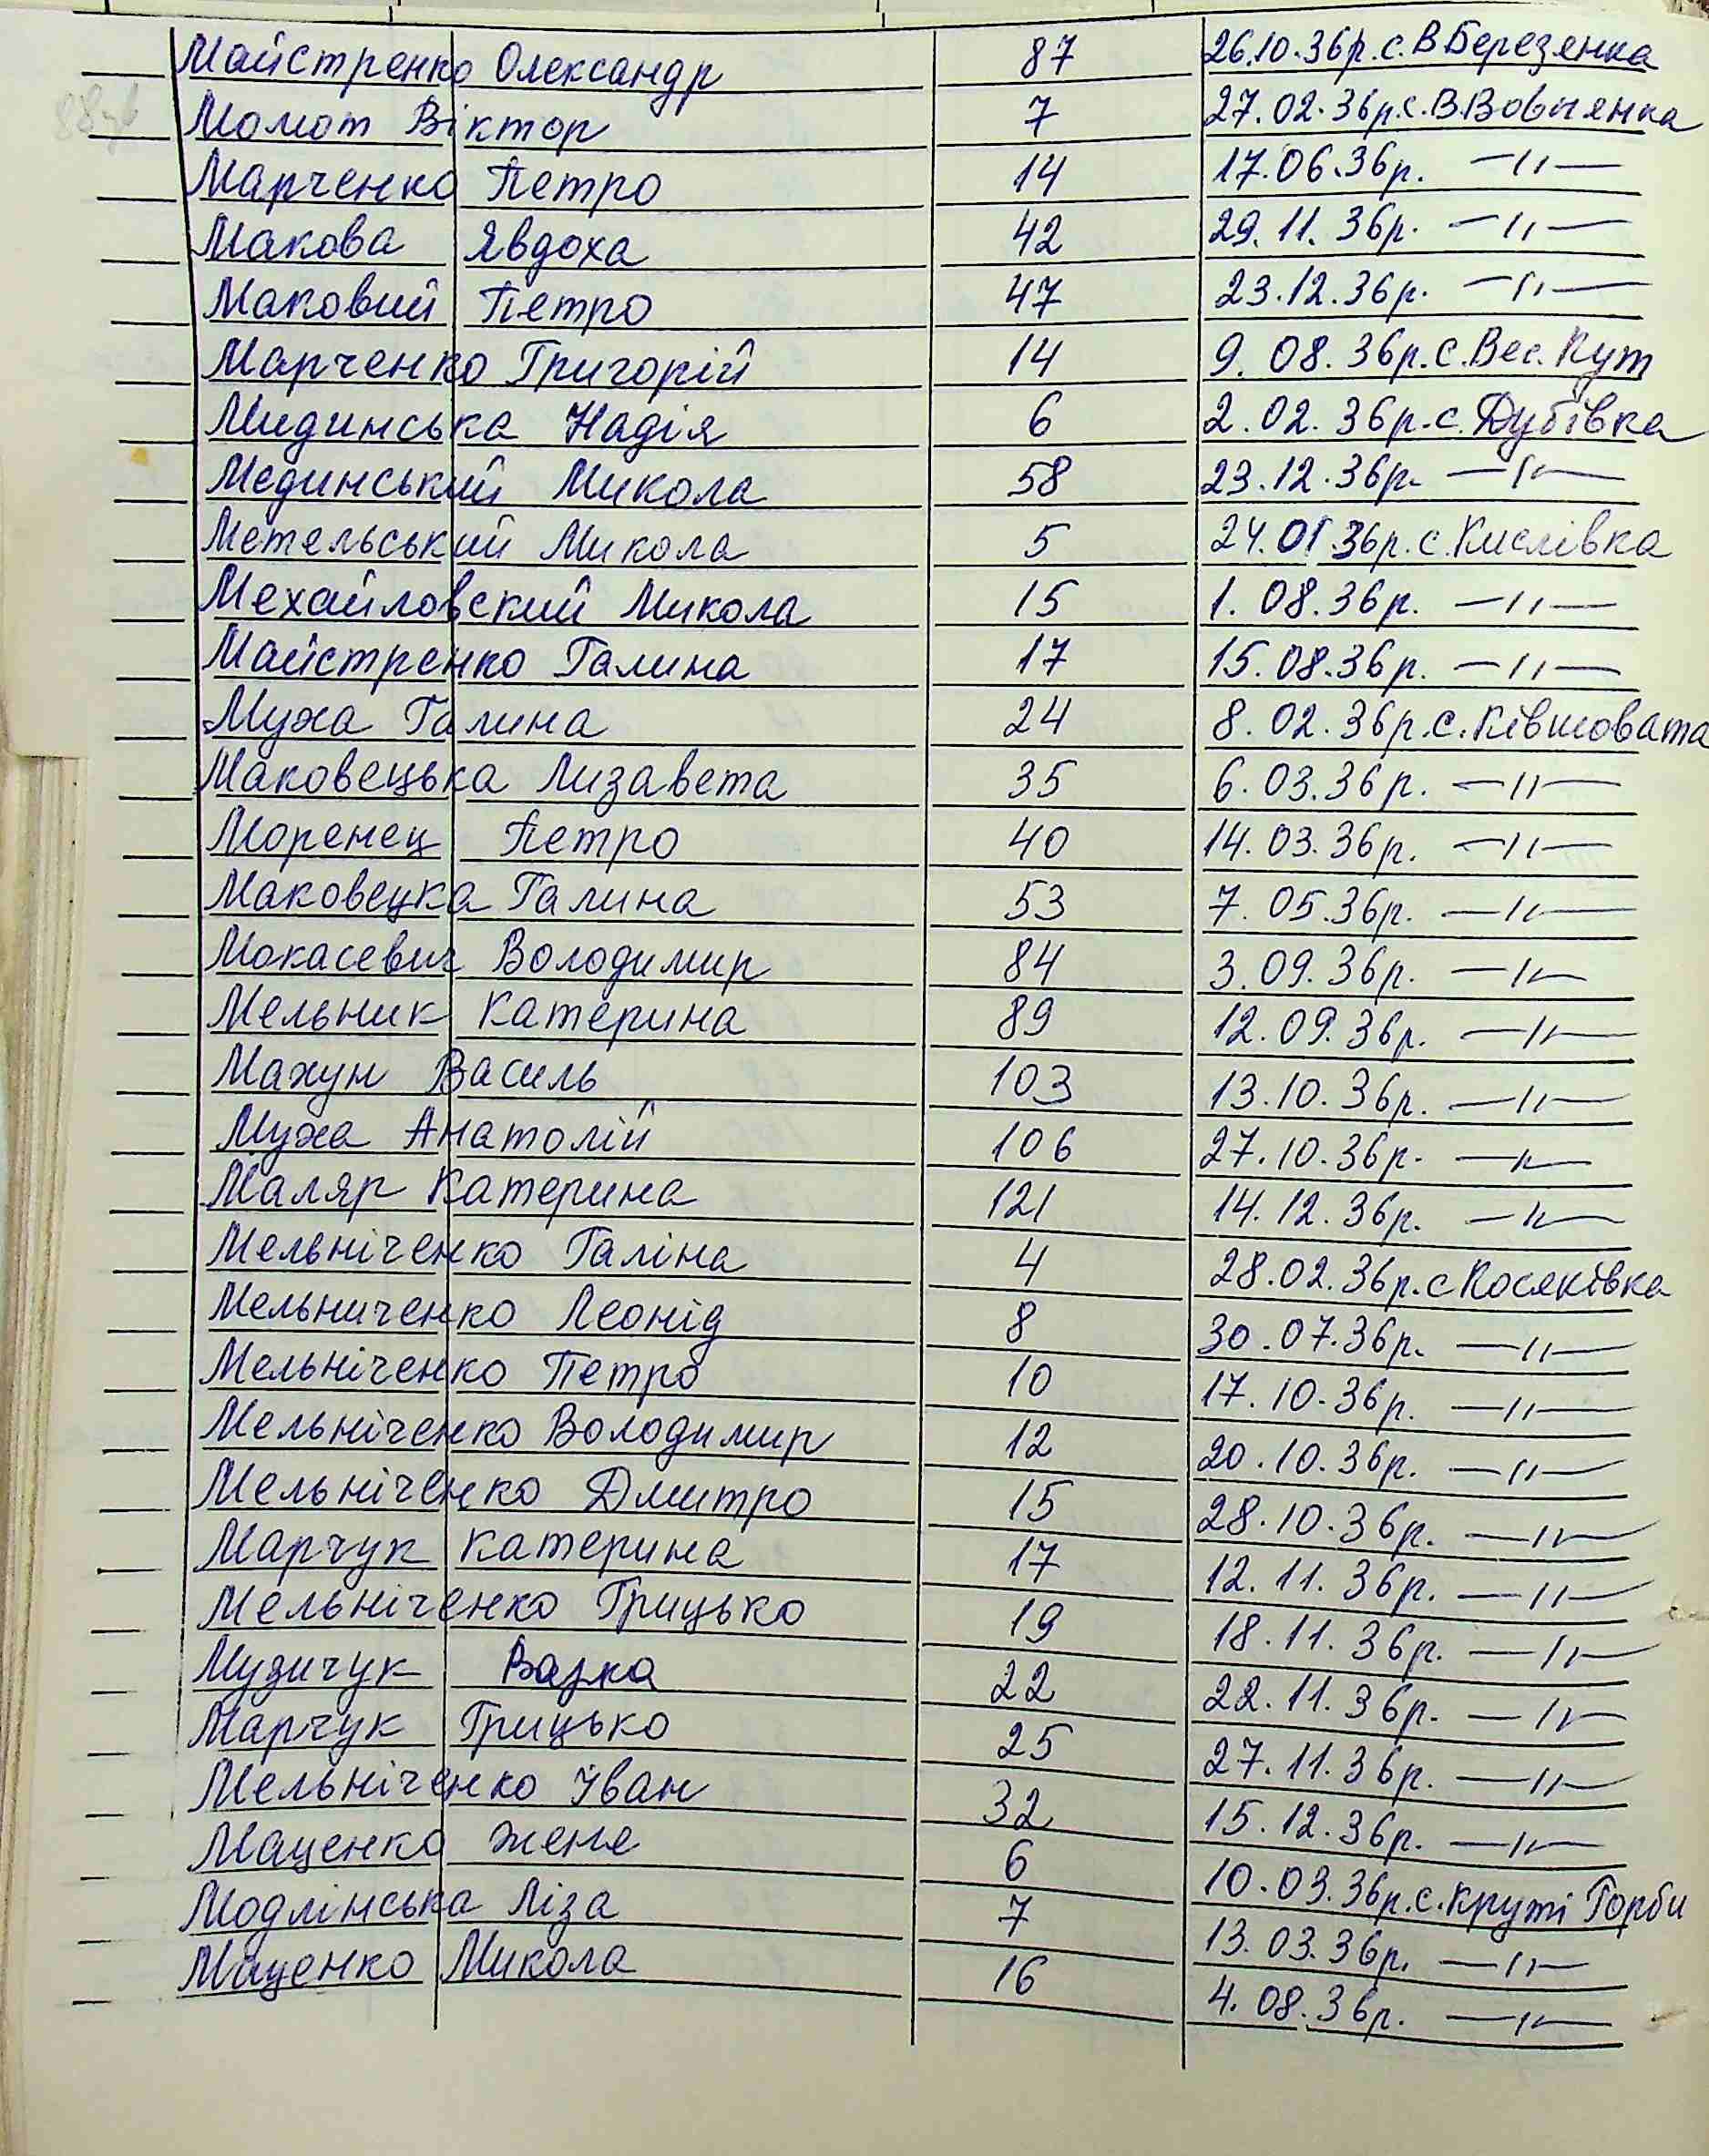 Майстренко Олександр 87 26.10.36р.с.В Березянка
Момот Віктор 7 27.02.36р.с.В.Вовнянка
Марченко Петро 14 17.06.36р. —〃—
Макова Явдоха 42 29.11.36р. —〃—
Маковий Петро 47 23.12.36р. —〃—
Марченко Григорій 14 9.08.36р.с.Вес.Кут
Мидинська Надія 6 2.02.36р.с.Дубівка
Мединський Микола 58 23.12.36р. —〃—
Метельський Микола 5 24.01.36р.с.Кислівка
Мехайловский Микола 15 1.08.36р. —〃—
Майстренко Галина 17 15.08.36р. —〃—
Муха Галина 24 8.02.36р.с.Ківшовата
Маковецька Лизавета 35 6.03.36р. —〃—
Моренец Петро 40 14.03.36р. —〃—
Маковецка Галина 53 7.05.36р. —〃—
Мокасевич Володимир 84 3.09.36р. —〃—
Мельник Катерина 89 12.09.36р. —〃—
Махун Василь 103 13.10.36р. —〃—
Муха Анатолій 106 27.10.36р. —〃—
Маляр Катерина 121 14.12.36р. —〃—
Мельніченко Галіна 4 28.02.36р.с Косяківка
Мельниченко Леонід 8 30.07.36р. —〃—
Мельніченко Петро 10 17.10.36р. —〃—
Мельніченко Володимир 12 20.10.36р. —〃—
Мельніченко Дмитро 15 28.10.36р. —〃—
Марчук Катерина 17 12.11.36р. —〃—
Мельніченко Грицько 19 18.11.36р. —〃—
Музичук 22 22.11.36р. —〃—
Марчук Грицько 25 27.11.36р. —〃—
Мельніченко Іван 32 15.12.36р. —〃—
Маценко Женя 6 10.03.36р.с.Круті Горби
Модлінська Ліза 7 13.03.36р. —〃—
Маценко Микола 16 4.08.36р. —〃—